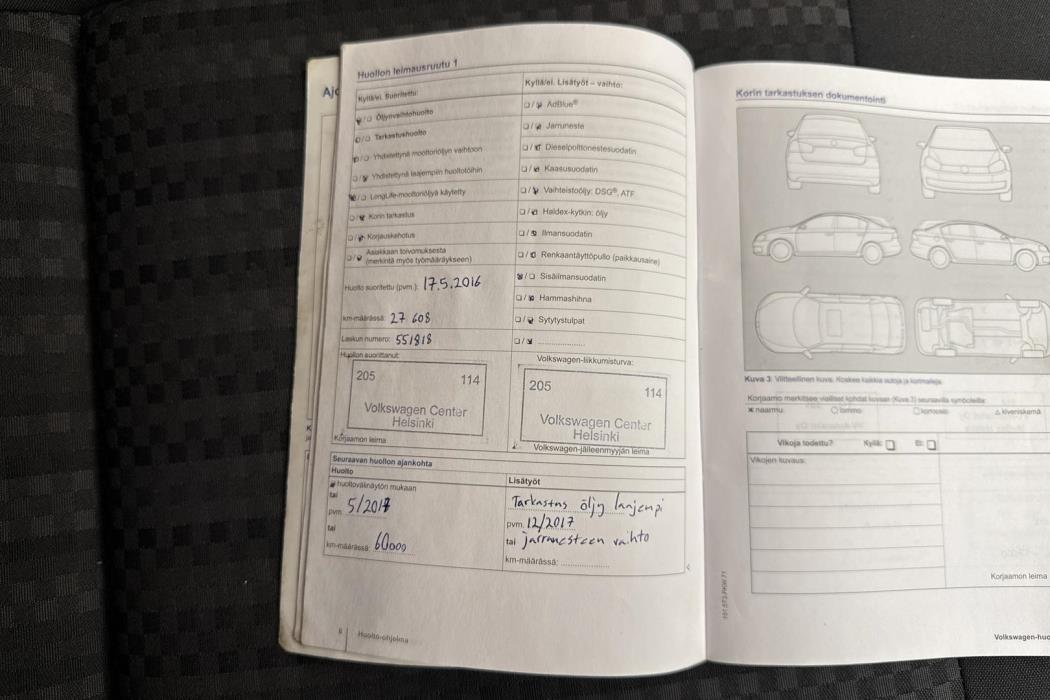 Ajo
Huollon leimausruutu 1
Kyllä/ei. Suoritettu:
Öljynvaihtohuolto
Tarkastushuolto
Yhdistettynä moottoriöljyn vaihtoon
Yhdistettynä laajempiin huoltotöihin
LongLife-moottoriöljyä käytetty
Korin tarkastus
Korjauskehotus
Asiakkaan toivomuksesta
(merkintä myös työmääräykseen)
Huolto suoritettu (pvm.): 17.5.2016
km-määrässä: 27 608
Laskun numero: 551818
Huollon suorittanut:
205 114
Volkswagen Center
Helsinki
Korjaamon leima
Kyllä/ei. Lisätyöt – vaihto:
AdBlue®
Jarruneste
Dieselpolttonestesuodatin
Kaasusuodatin
Vaihteistoöljy: DSG®, ATF
Haldex-kytkin: öljy
Ilmansuodatin
Renkaantäyttöpullo (paikkausaine)
Sisäilmansuodatin
Hammashihna
Sytytystulpat
Volkswagen-liikkumisturva:
205 114
Volkswagen Center
Helsinki
Volkswagen-jälleenmyyjän leima
Seuraavan huollon ajankohta
Huolto
huoltovälinäytön mukaan
tai
pvm. 5/2017
tai
km-määrässä: 60000
Lisätyöt
Tarkastus öljy laajempi
pvm. 12/2017
tai jarrunesteen vaihto
km-määrässä:
Huolto-ohjelma
Korin tarkastuksen dokumentointi
Kuva 3 Viitteellinen kuva: Koskee kaikkia autoja ja korimalleja.
Korjaamo merkitsee vialliset kohdat kuvaan (Kuva 3) seuraavilla symboleilla:
naarmu
lommo
korroosio
kiveniskemä
Vikoja todettu? Kyllä: Ei:
Vikojen kuvaus:
Korjaamon leima
Volkswagen-huo